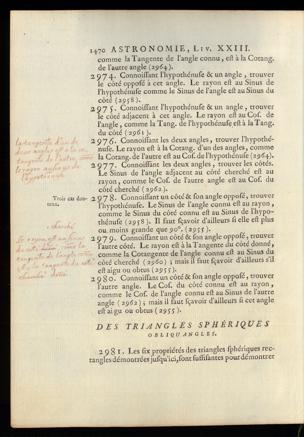 1470 ASTRONOMIE, LIV. XXIII.
comme la Tangente de l'angle connu, est à la Cotang.
de l'autre angle (2964).
2974. Connoissant l'hypothénuse & un angle, trouver
le côté opposé à cet angle. Le rayon est au Sinus de
l'hypothénuse comme le Sinus de l'angle est au Sinus du
côté (2958).
2975. Connoissant l'hypothénuse & un angle, trouver
le côté adjacent à cet angle. Le rayon est au Cos. de
l'angle, comme la Tang. de l'hypothénuse est à la Tang.
du côté (2961).
2976. Connoissant les deux angles, trouver l'hypothé-
nuse. Le rayon est à la Cotang. d'un des angles, comme
la Cotang. de l'autre est au Cos. de l'hypothénuse (2964).
2977. Connoissant les deux angles, trouver les côtés.
Le Sinus de l'angle adjacent au côté cherché est au
rayon, comme le Cos. de l'autre angle est au Cos. du
côté cherché (2962).
Trois cas dou-
teux.
2978. Connoissant un côté & son angle opposé, trouver
l'hypothénuse. Le Sinus de l'angle connu est au rayon,
comme le Sinus du côté connu est au Sinus de l'hypo-
thénuse (2958). Il faut sçavoir d'ailleurs si elle est plus
ou moins grande que 90°. (2955).
2979. Connoissant un côté & son angle opposé, trouver
l'autre côté. Le rayon est à la Tangente du côté donné,
comme la Cotangente de l'angle connu est au Sinus du
côté cherché (2960); mais il faut sçavoir d'ailleurs s'il
est aigu ou obtus (2955).
2980. Connoissant un côté & son angle opposé, trouver
l'autre angle. Le Cos. du côté connu est au rayon,
comme le Cos. de l'angle connu est au Sinus de l'autre
angle (2962); mais il faut sçavoir d'ailleurs si cet angle
est aigu ou obtus (2955).
DES TRIANGLES SPHÉRIQUES
OBLIQUANGLES.
2981. Les six propriétés des triangles sphériques rec-
tangles démontrées jusqu'ici, sont suffisantes pour démontrer